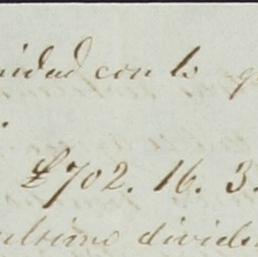 con lo
.
£702. 16. 3.
ultimo divide